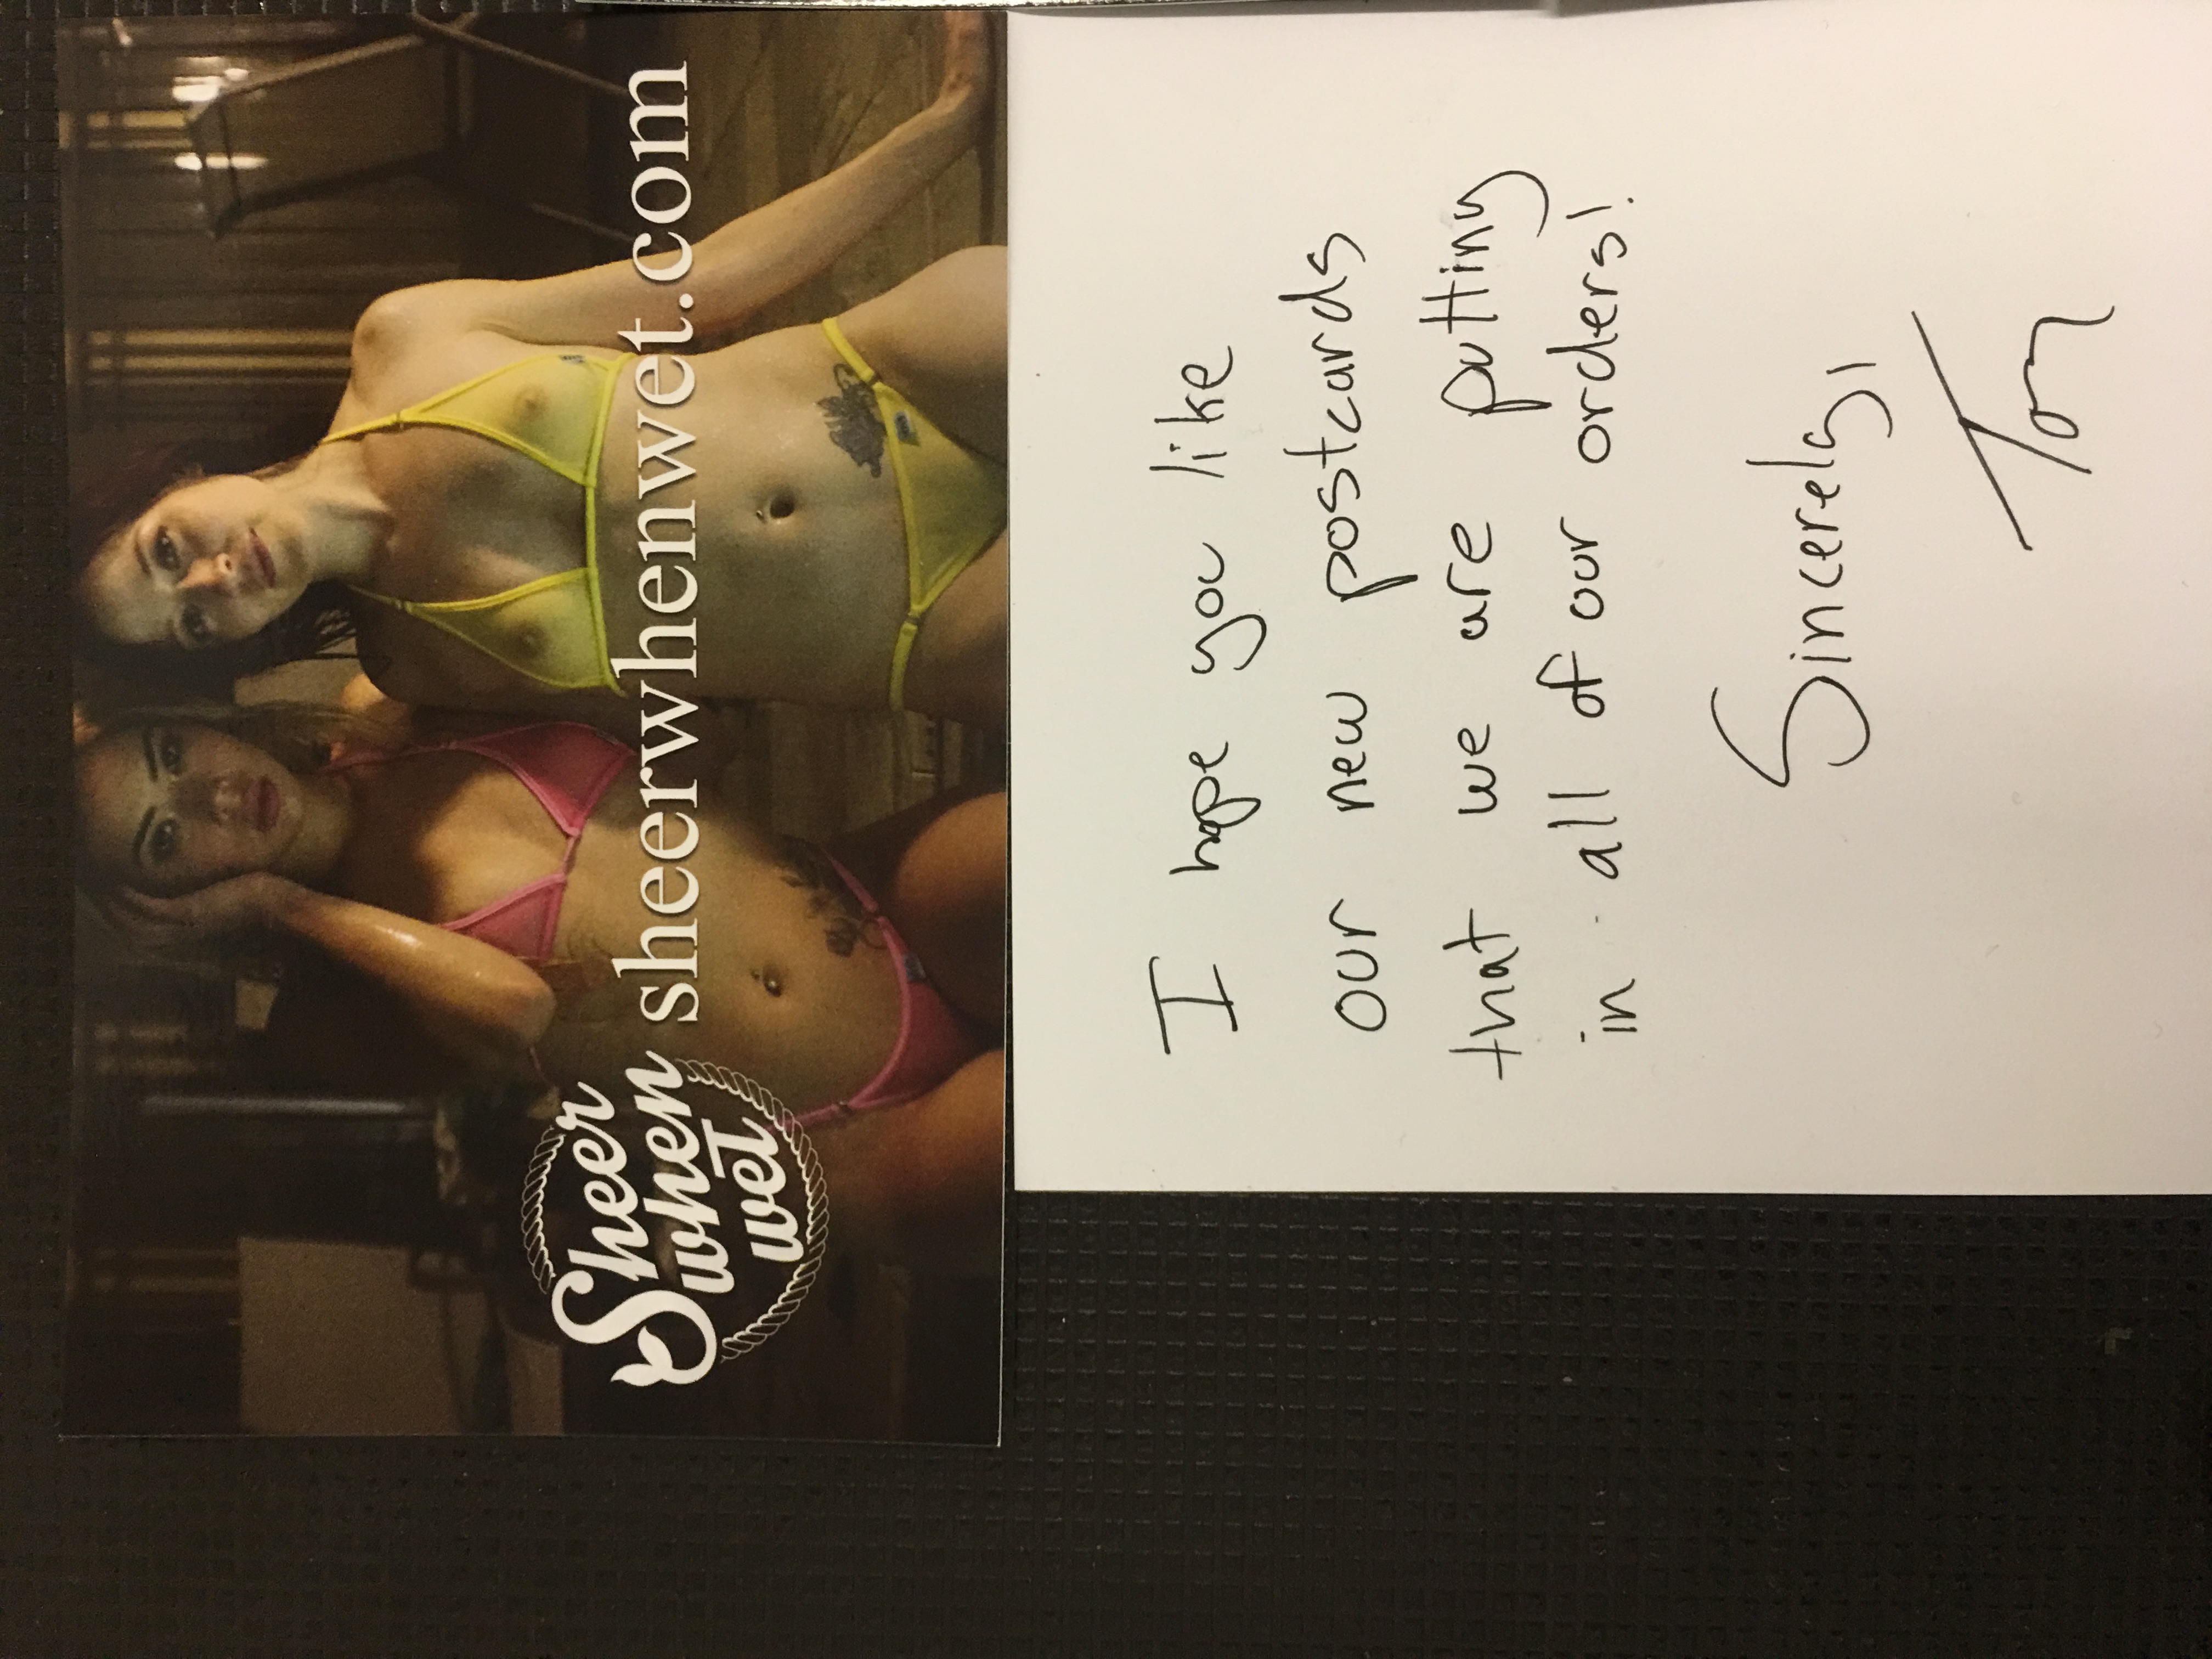 Sheer
when
wet
sheerwhenwet.com
I hope you like
our new postcards
that we are putting
in all of our orders!
Sincerely,